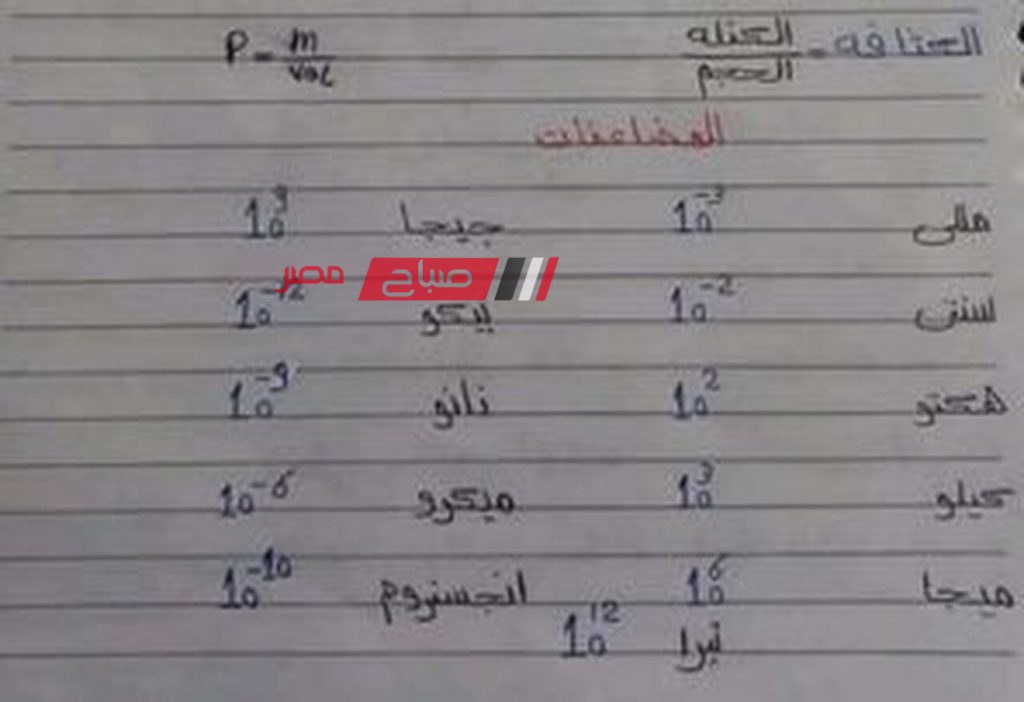 الكثافة = الكتله / الحجم P = m / Vol
المضاعفات
مللى 10^-3 جيجا 10^9
صباح مصر
سنتى 10^-2 بيكو 10^-12
هكتو 10^2 نانو 10^-9
كيلو 10^3 ميكرو 10^-6
ميجا 10^6 انجستروم 10^-10
تيرا 10^12